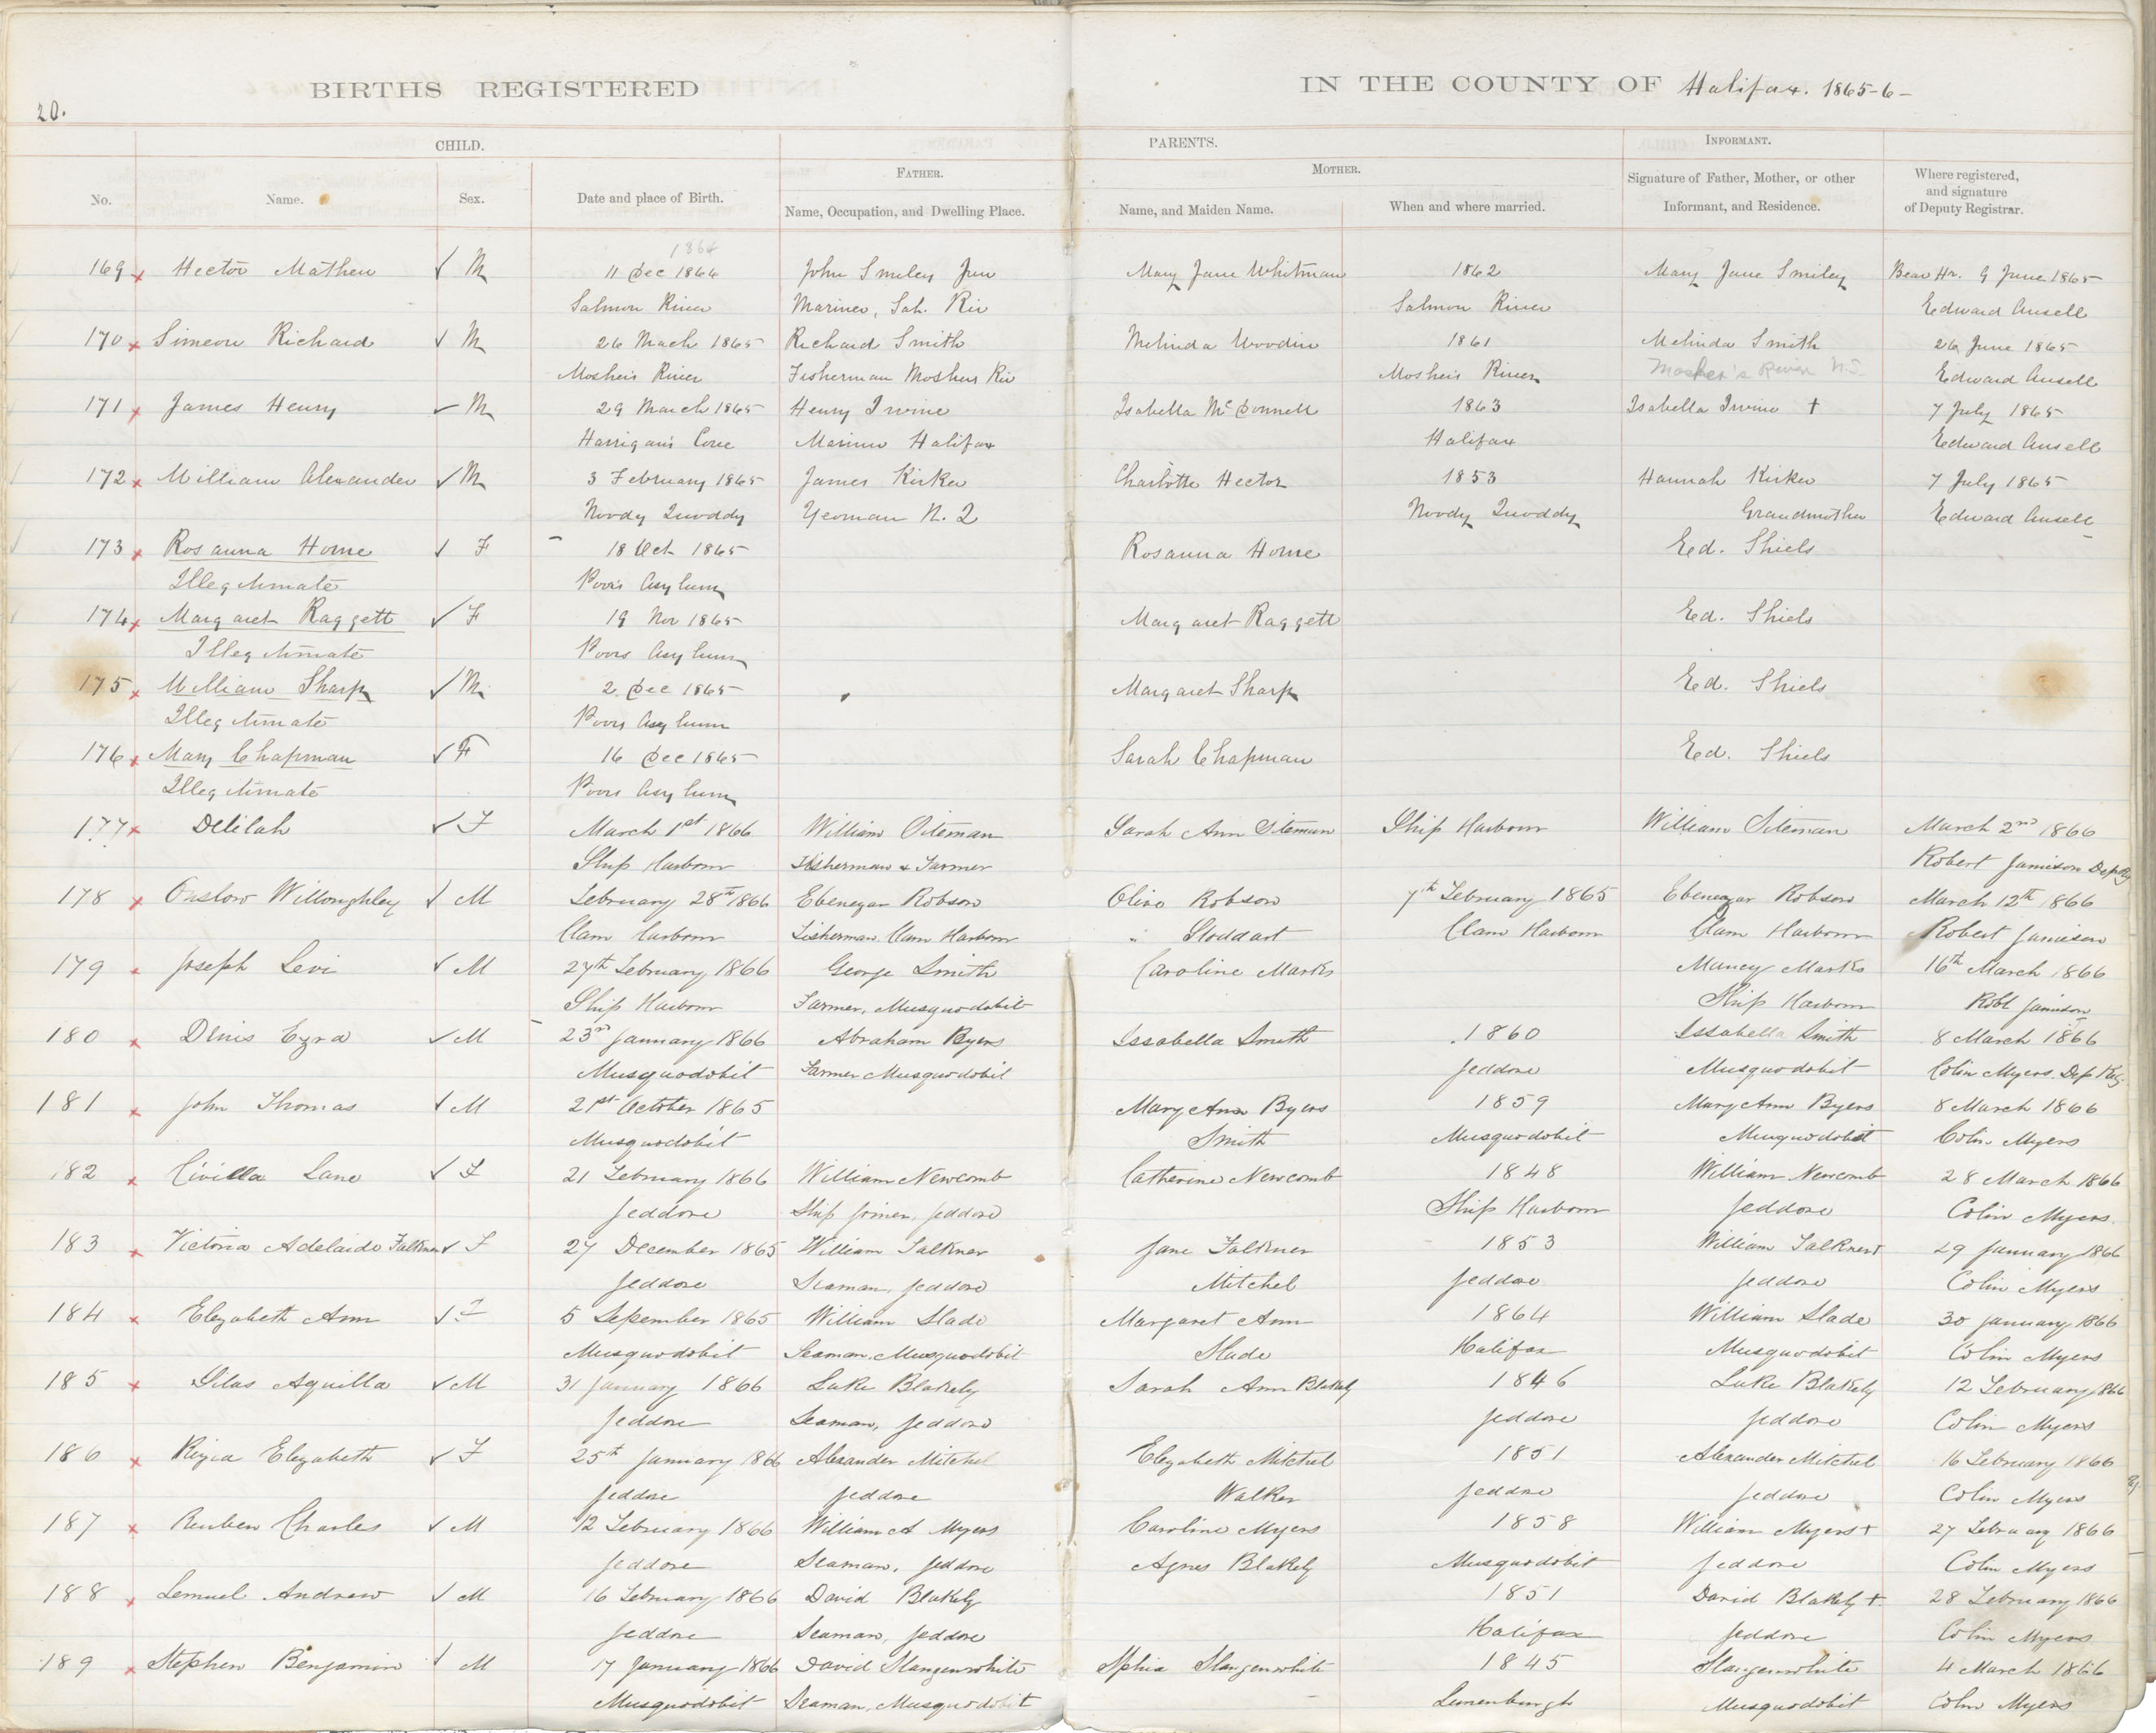 20.
BIRTHS REGISTERED IN THE COUNTY OF Halifax. 1865-6-
CHILD. PARENTS. INFORMANT.
No. Name. Sex. Date and place of Birth. FATHER. Name, Occupation, and Dwelling Place. MOTHER. Name, and Maiden Name. When and where married. Signature of Father, Mother, or other Informant, and Residence. Where registered, and signature of Deputy Registrar.
1864
169 x Hector Mathew ✓ M 11 Dec 1864 John Smiley Jun Mary Jane Whitman 1862 Mary Jane Smiley Beav Hr. 9 June 1865
Salmon River Mariner, Sal. Riv Salmon River Edward Ansell
170 x Simeon Richard ✓ M 26 March 1865 Richard Smith Melinda Woodin 1861 Melinda Smith 26 June 1865
Moshers River Fisherman Moshers Riv Moshers River Mosher's River N.S Edward Ansell
171 x James Henry ✓ M 29 March 1865 Henry Irvine Isabella McDonnell 1863 Isabella Irvine + 7 July 1865
Harrigan's Cove Mariner Halifax Halifax Edward Ansell
172 x William Alexander ✓ M 3 February 1865 James Kirker Charlotte Hector 1853 Hannah Kirker 7 July 1865
Noody Quoddy Yeoman N. Q Noody Quoddy Grandmother Edward Ansell
173 x Rosanna Horne ✓ F 18 Oct 1865 Rosanna Horne Ed. Shiels
Illegitimate Poors Asylum
174 x Margaret Raggett ✓ F 19 Nov 1865 Margaret Raggett Ed. Shiels
Illegitimate Poors Asylum
175 x William Sharp ✓ M 2 Dec 1865 Margaret Sharp Ed. Shiels
Illegitimate Poors Asylum
176 x Mary Chapman ✓ F 16 Dec 1865 Sarah Chapman Ed. Shiels
Illegitimate Poors Asylum
177 x Delilah ✓ F March 1st 1866 William Siteman Sarah Ann Siteman Ship Harbour William Siteman March 2nd 1866
Ship Harbour Fisherman & Farmer Robert Jamison Dep Rg
178 x Onslow Willoughley ✓ M February 28th 1866 Ebenezar Robson Olive Robson 7th February 1865 Ebenezar Robson March 12th 1866
Clam Harbour Fisherman Clam Harbour " Stoddart Clam Harbour Clam Harbour Robert Jamison
179 x Joseph Levi ✓ M 27th February 1866 George Smith Caroline Marks Mancy Marks 16th March 1866
Ship Harbour Farmer, Musquodobit Ship Harbour Robt Jamison
180 x Dinis Ezra ✓ M 23rd January 1866 Abraham Byers Issabella Smith 1860 Issabella Smith 8 March 1866
Musquodobit Farmer Musquodobit Jeddore Musquodobit Colin Myers. Dep Reg.
181 x John Thomas ✓ M 21st October 1865 Mary Ann Byers 1859 Mary Ann Byers 8 March 1866
Musquodobit Smith Musquodobit Musquodobit Colin Myers
182 x Civilla Lane ✓ F 21 February 1866 William Newcomb Catherine Newcomb 1848 William Newcomb 28 March 1866
Jeddore Ship Joiner, Jeddore Ship Harbour Jeddore Colin Myers.
183 x Victoria Adelaide Falkner ✓ F 27 December 1865 William Falkner Jane Falkner 1853 William Falkner + 29 January 1866
Jeddore Seaman, Jeddore Mitchel Jeddore Jeddore Colin Myers
184 x Elezabeth Ann ✓ F 5 September 1865 William Slade Margaret Ann 1864 William Slade 30 January 1866
Musquodobit Seaman. Musquodobit Slade Halifax Musquodobit Colin Myers
185 x Silas Aquilla ✓ M 31 January 1866 Luke Blakely Sarah Ann Blakely 1846 Luke Blakely 12 February 1866
Jeddore Seaman, Jeddore Jeddore Jeddore Colin Myers
186 x Elezabeth ✓ F 25th January 1866 Alexander Mitchel Elezabeth Mitchel 1851 Alexander Mitchel 16 February 1866
Jeddore Jeddore Walker Jeddore Jeddore Colin Myers
187 x Reuben Charles ✓ M 12 February 1866 William A Myers Caroline Myers 1858 William Myers + 27 February 1866
Jeddore Seaman, Jeddore Agnes Blakely Musquodobit Jeddore Colin Myers
188 x Lemuel Andrew ✓ M 16 February 1866 David Blakely 1851 David Blakely +. 28 February 1866
Jeddore Seaman, Jeddore Halifax Jeddore Colin Myers
189 x Stephen Benjamin ✓ M 17 January 1866 David Slangenwhite Sphia Slangenwhite 1845 Slangenwhite 4 March 1866
Musquodobit Seaman, Musquodobit Lunenburgh Musquodobit Colin Myers